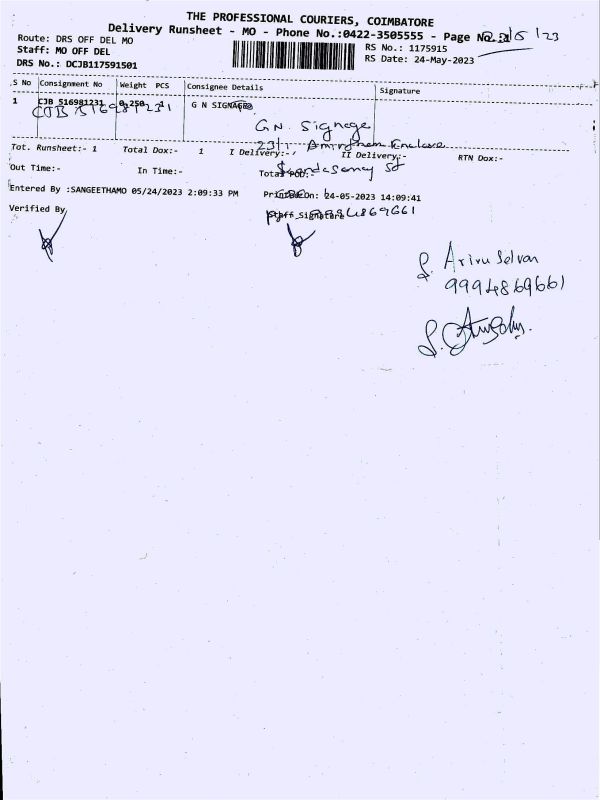 THE PROFESSIONAL COURIERS, COIMBATORE
Delivery Runsheet - MO - Phone No.:0422-3505555 - Page No.
Route: DRS OFF DEL MO
RS No.: 1175915
Staff: MO OFF DEL
RS Date: 24-May-2023
DRS No.: DCJB117591501
S No Consignment No Weight PCS Consignee Details Signature
1 CJB 516981231 0.250 1 G N SIGNAGES
CJB 516981231
G.N. Signage
23/1, Enclave
Tot. Runsheet:- 1 Total Dox:- 1 I Delivery:- II Delivery:- RTN Dox:-
Out Time:- In Time:- Total POD:-
Entered By :SANGEETHAMO 05/24/2023 2:09:33 PM Printed On: 24-05-2023 14:09:41
Verified By Staff Signature
S. Arivu Selvan
9994869661